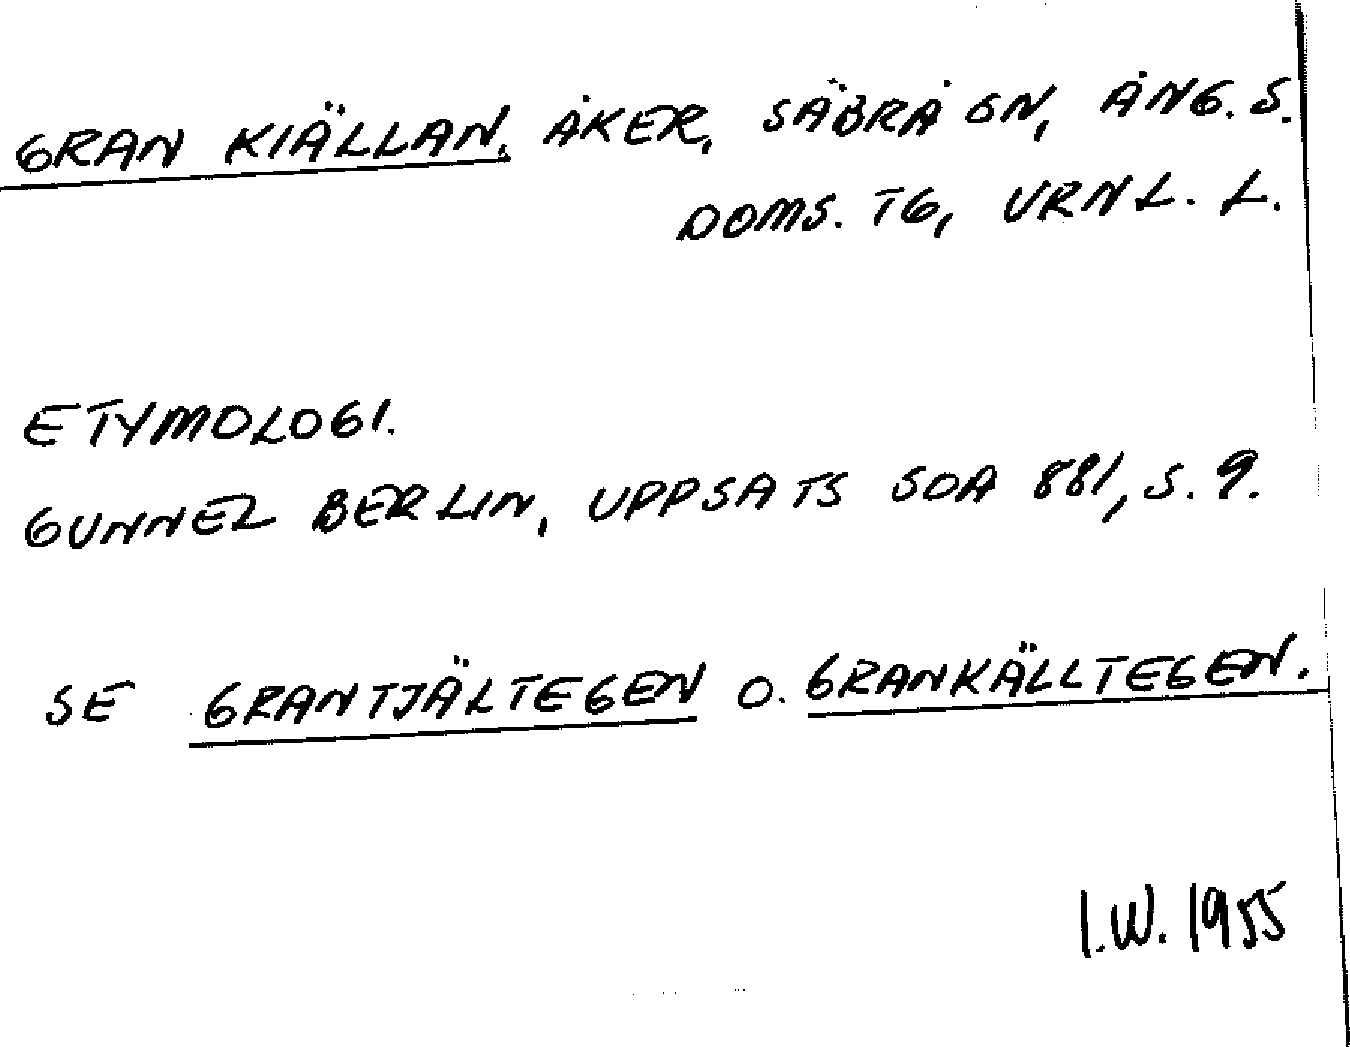 GRAN KIÄLLAN, ÅKER, SÄBRÅ SN, ÅNG. S.
DOMS. TG, VRNL. L.
ETYMOLOGI.
GUNNEL BERLIN, UPPSATS SOA 881, S. 9.
SE GRANTJÄLTEGEN O. GRANKÄLLTEGEN.
I.W. 1955